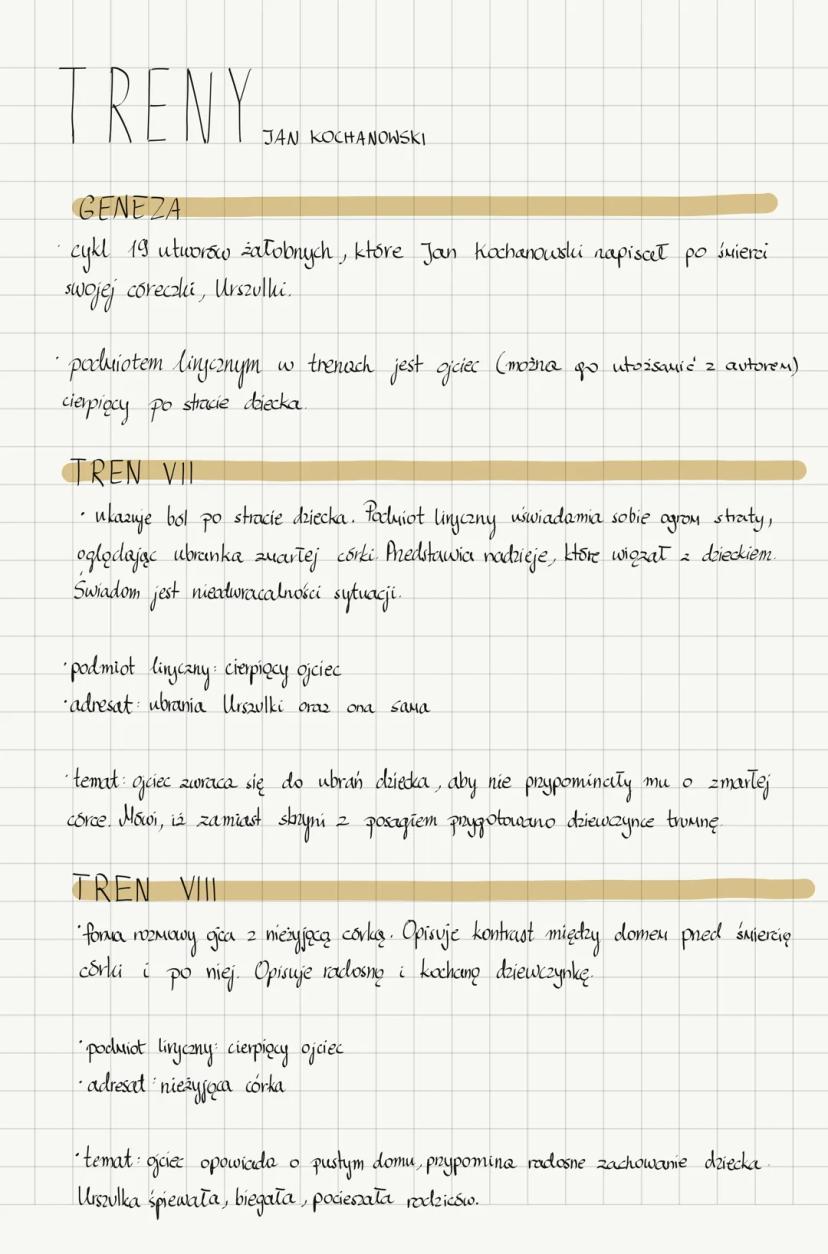 TRENY JAN KOCHANOWSKI
GENEZA
· cykl 19 utworów żałobnych, które Jan Kochanowski napisał po śmierci
swojej córeczki, Urszulki.
· podmiotem lirycznym w trenach jest ojciec (można go utożsamić z autorem)
cierpiący po stracie dziecka.
TREN VII
· ukazuje ból po stracie dziecka. Podmiot liryczny uświadamia sobie ogrom straty,
oglądając ubranka zmarłej córki. Przedstawia nadzieje, które wiązał z dzieckiem.
Świadom jest nieodwracalności sytuacji.
· podmiot liryczny: cierpiący ojciec
· adresat: ubrania Urszulki oraz ona sama
· temat: ojciec zwraca się do ubrań dziecka, aby nie przypominały mu o zmarłej
córce. Mówi, iż zamiast skrzyni z posagiem przygotowano dziewczynce trumnę.
TREN VIII
· forma rozmowy ojca z nieżyjącą córką. Opisuje kontrast między domem przed śmiercią
córki i po niej. Opisuje radosną i kochaną dziewczynkę.
· podmiot liryczny: cierpiący ojciec
· adresat: nieżyjąca córka
· temat: ojciec opowiada o pustym domu, przypomina radosne zachowanie dziecka.
Urszulka śpiewała, biegała, pocieszała rodziców.